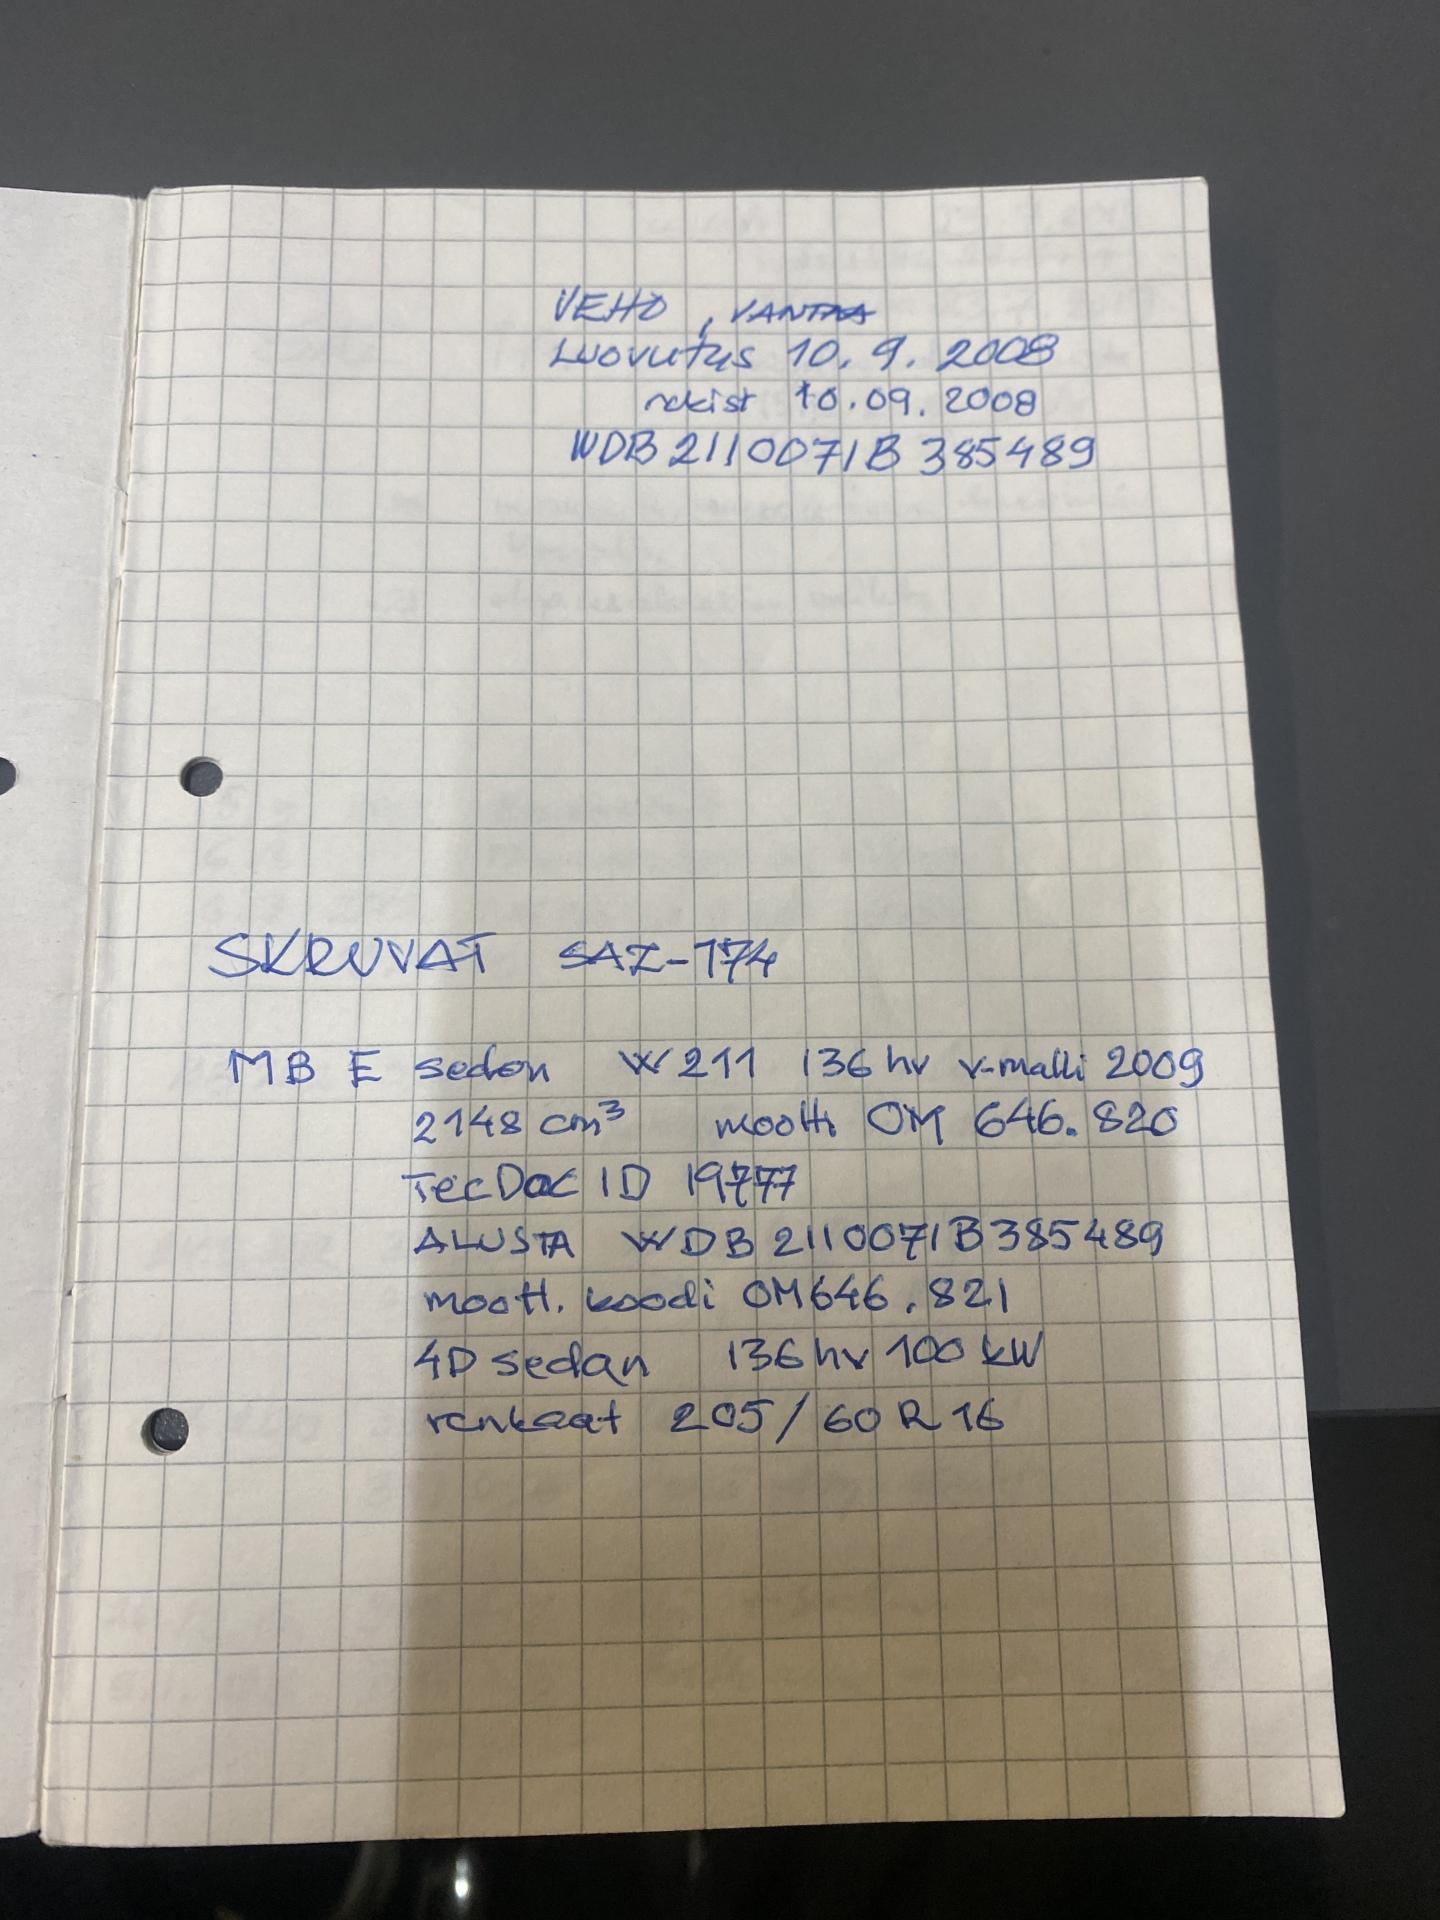 VEHO, VANTAA
Luovutus 10.9.2008
rekist 10.09.2008
WDB2110071B385489
SKRUVAT SAZ-174
MB E sedan W211 136 hv v-malli 2009
2148 cm³ mootti OM 646.820
TecDoc ID 19777
ALUSTA WDB2110071B385489
moott. koodi OM646.821
4D sedan 136 hv 100 kW
renkaat 205/60 R 16